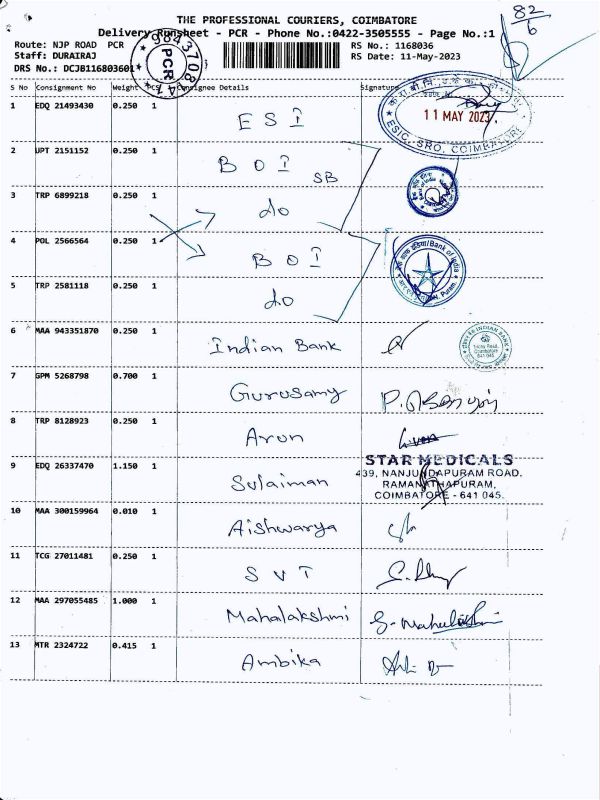 THE PROFESSIONAL COURIERS, COIMBATORE
Delivery Runsheet - PCR - Phone No.:0422-3505555 - Page No.:1
82/6
Route: NJP ROAD PCR
RS No.: 1168036
Staff: DURAIRAJ
RS Date: 11-May-2023
DRS No.: DCJB116803601
PCR
S No Consignment No Weight PCS Consignee Details Signature
1 EDQ 21493430 0.250 1 ESI
11 MAY 2023
ESIC, SRO, COIMBATORE
2 UPT 2151152 0.250 1 BOI SB
3 TRP 6899218 0.250 1 do
4 POL 2566564 0.250 1 BOI
Bank of India
5 TRP 2581118 0.250 1 do
6 MAA 943351870 0.250 1 Indian Bank
INDIAN BANK
Coimbatore
641 045
7 GPM 5268798 0.700 1 Gurusamy
8 TRP 8128923 0.250 1 Arun
9 EDQ 26337470 1.150 1 Sulaiman
STAR MEDICALS
439, NANJUNDAPURAM ROAD.
RAMANATHAPURAM,
COIMBATORE - 641 045.
10 MAA 300159964 0.010 1 Aishwarya
11 TCG 27011481 0.250 1 SVT
12 MAA 297055485 1.000 1 Mahalakshmi
13 MTR 2324722 0.415 1 Ambika